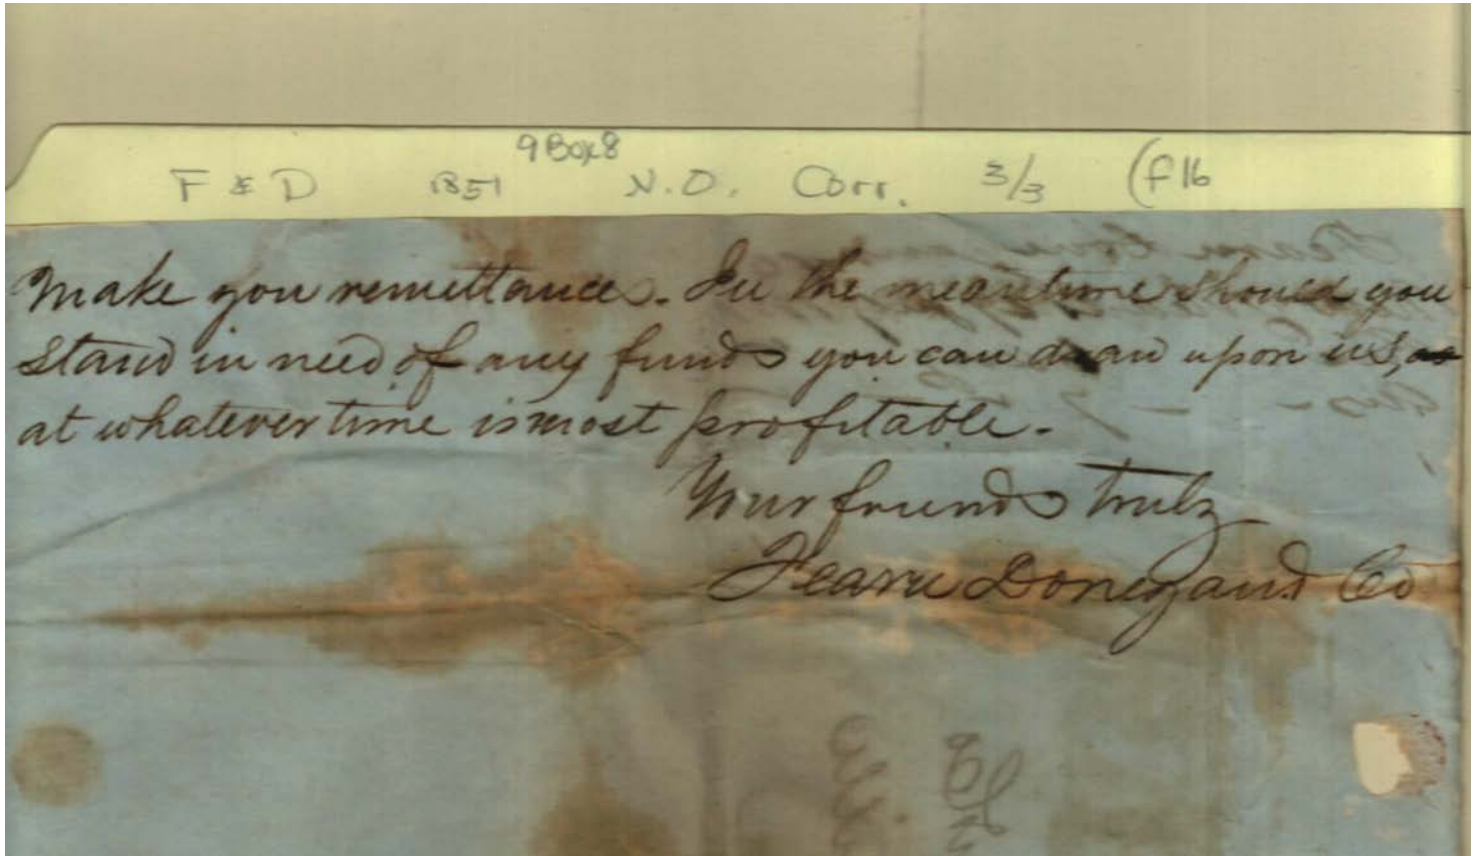 9 Box 8
F & D 1851 N.O. Corr. 3/3 (f 16
Make you remittances. In the meantime should you
stand in need of any funds you can draw upon us,
at whatever time is most profitable.
Your friends truly
Fearn Donegan & Co